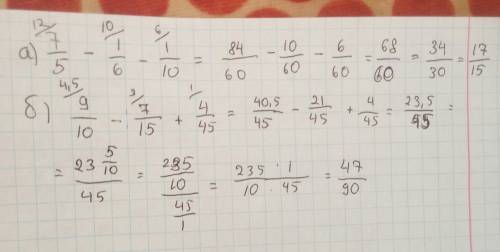 а) 12/ 7/5 − 10/ 1/6 − 6/ 1/10 = 84/60 − 10/60 − 6/60 = 68/60 = 34/30 = 17/15
б) 4,5/ 9/10 − 3/ 7/15 + 1/ 4/45 = 40,5/45 − 21/45 + 4/45 = 23,5/45 =
= 23 5/10 / 45 = 235/10 / 45/1 = 235 · 1 / 10 · 45 = 47/90